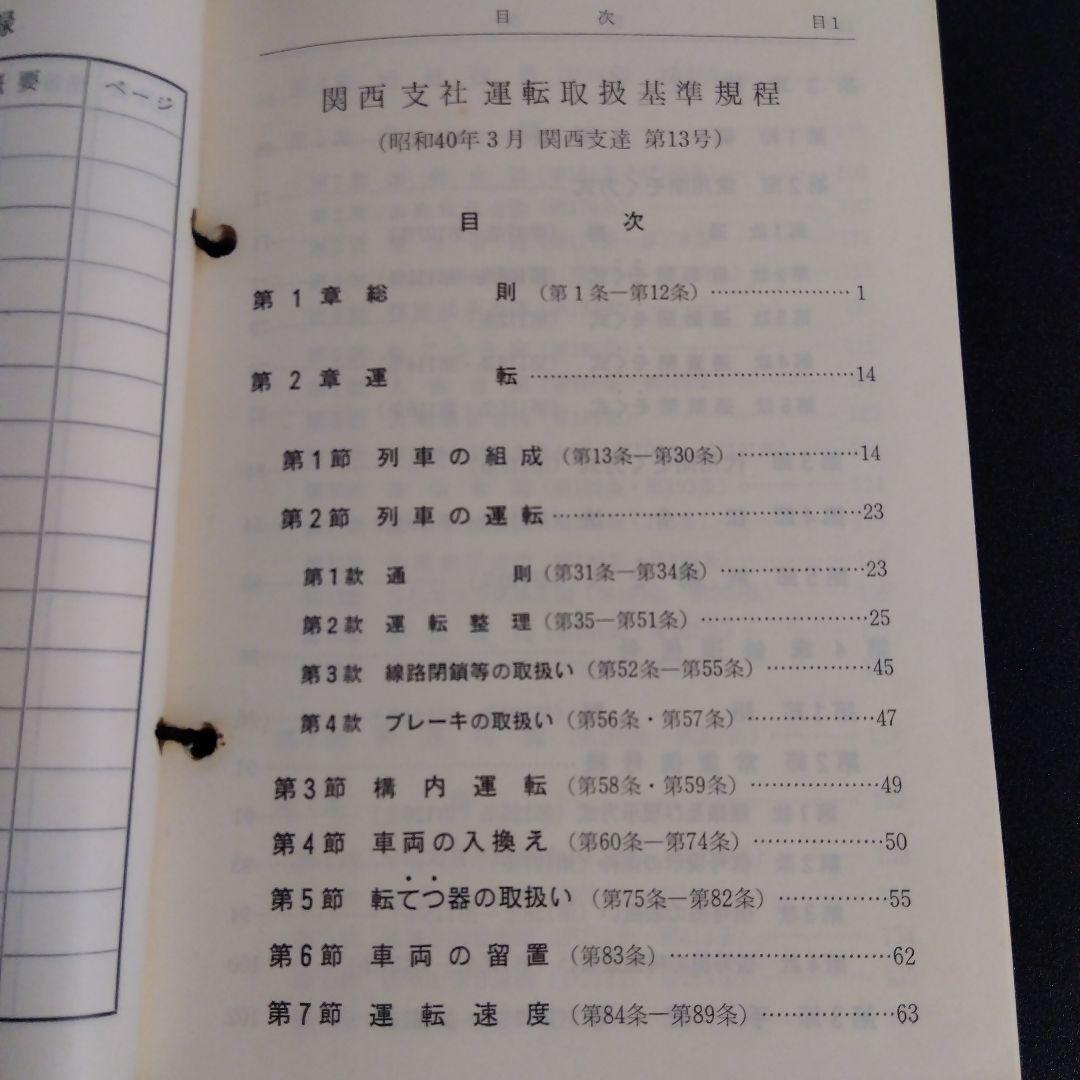 録
要
ページ
目　次　目1
関西支社運転取扱基準規程
(昭和40年3月 関西支達 第13号)
目　次
第1章 総　則 (第1条―第12条) …………………1
第2章 運　転 …………………14
第1節 列車の組成 (第13条―第30条) …………………14
第2節 列車の運転 …………………23
第1款 通　則 (第31条―第34条) …………………23
第2款 運転整理 (第35―第51条) …………………25
第3款 線路閉鎖等の取扱い (第52条―第55条) …………………45
第4款 ブレーキの取扱い (第56条・第57条) …………………47
第3節 構内運転 (第58条・第59条) …………………49
第4節 車両の入換え (第60条―第74条) …………………50
第5節 転てつ器の取扱い (第75条―第82条) …………………55
第6節 車両の留置 (第83条) …………………62
第7節 運転速度 (第84条―第89条) …………………63